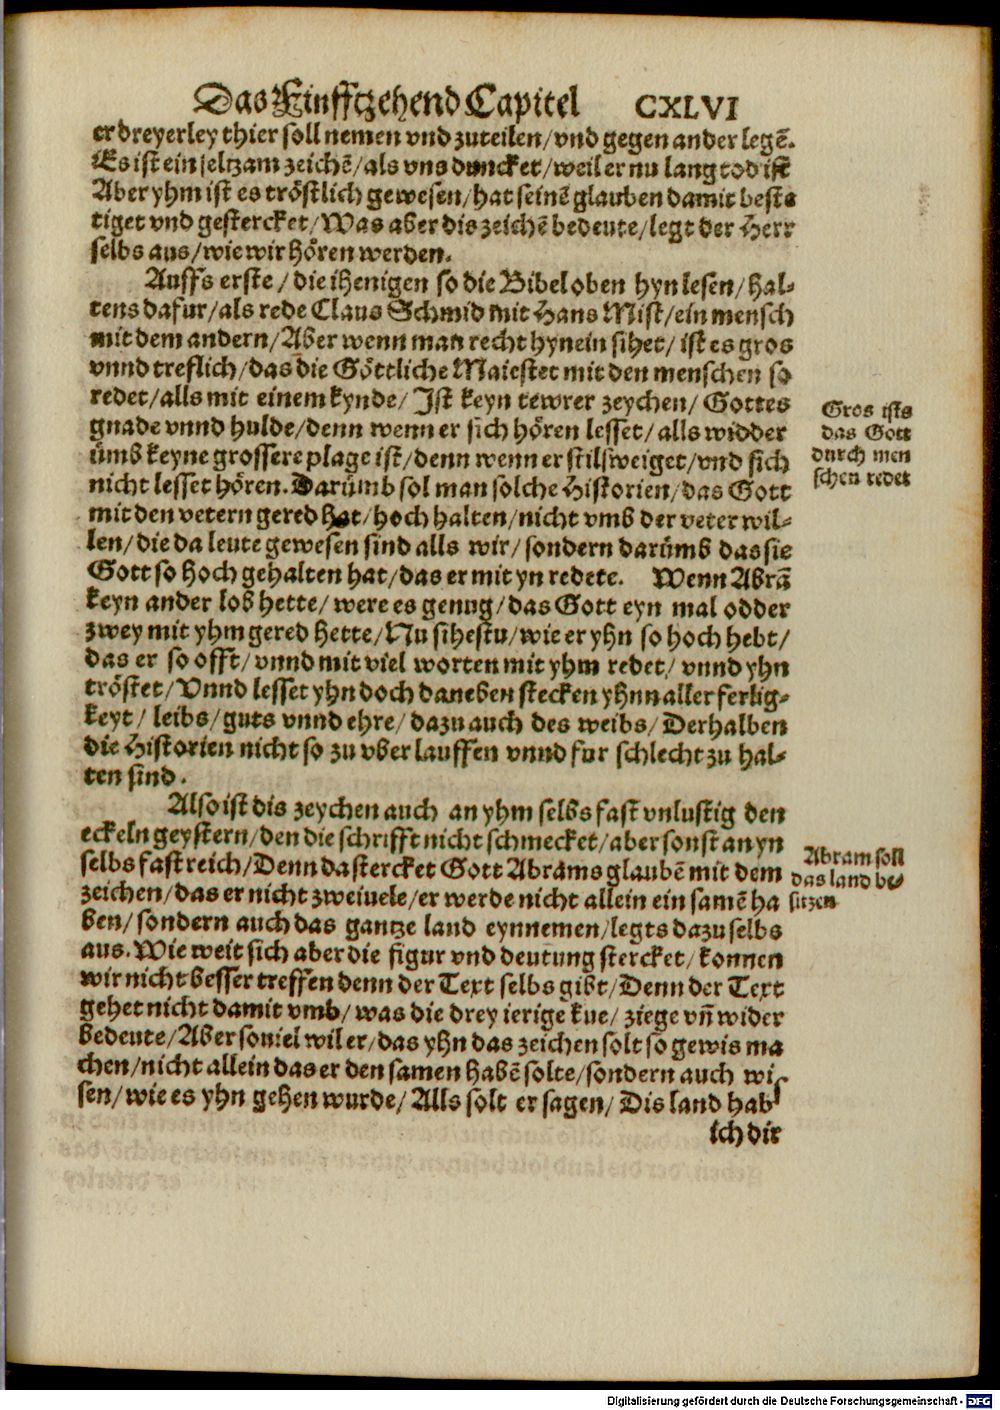 Das Funfftzehend Capitel CXLVI
er dreyerley thier soll nemen vnd zuteilen/vnd gegen ander legẽ.
Es ist ein seltzam zeichẽ/als vns duncket/weil er nu lang tod ist
Aber yhm ist es tröstlich gewesen/hat seinẽ glauben damit beste
tiget vnd gestercket/Was aber dis zeichẽ bedeute/legt der Herr
selbs aus/wie wir hören werden.
Auffs erste/die ihenigen so die Bibel oben hyn lesen/hal-
tens dafur/als rede Claus Schmid mit Hans Mist/ein mensch
mit dem andern/Aber wenn man recht hynein sihet/ist es gros
vnnd treflich/das die Göttliche Maiestet mit den menschen so
redet/alls mit einem kynde/Ist keyn tewrer zeychen/Gottes
gnade vnnd hulde/denn wenn er sich hören lesset/alls widder
ümb keyne grossere plage ist/denn wenn er stilsweiget/vnd sich
nicht lesset hören. Darümb sol man solche Historien/das Gott
mit den vetern gered hat/hoch halten/nicht vmb der veter wil-
len/die da leute gewesen sind alls wir/sondern darümb das sie
Gott so hoch gehalten hat/das er mit yn redete. Wenn Abrã
keyn ander lob hette/were es genug/das Gott eyn mal odder
zwey mit yhm gered hette/Nu sihestu/wie er yhn so hoch hebt/
das er so offt/vnnd mit viel worten mit yhm redet/vnnd yhn
tröstet/Vnnd lesset yhn doch daneben stecken yhnn aller ferlig-
keyt/leibs/guts vnnd ehre/dazu auch des weibs/Derhalben
die Historien nicht so zu vberlauffen vnnd fur schlecht zu hal-
ten sind.
Also ist dis zeychen auch an yhm selbs fast vnlustig den
eckeln geystern/den die schrifft nicht schmecket/aber sonst an yn
selbs fast reich/Denn da stercket Gott Abrams glaubẽ mit dem
zeichen/das er nicht zweiuele/er werde nicht allein ein samẽ ha
ben/sondern auch das gantze land eynnemen/legts dazu selbs
aus. Wie weit sich aber die figur vnd deutung stercket/konnen
wir nicht besser treffen denn der Text selbs gibt/Denn der Text
gehet nicht damit vmb/was die drey ierige kue/ziege vñ wider
bedeute/Aber souiel wil er/das yhn das zeichen solt so gewis ma
chen/nicht allein das er den samen habẽ solte/sondern auch wi
sen/wie es yhn gehen wurde/Alls solt er sagen/Dis land hab
ich dir
Gros ists
das Gott
durch men
schen redet
Abram soll
das land be
sitzen
Digitalisierung gefördert durch die Deutsche Forschungsgemeinschaft - DFG